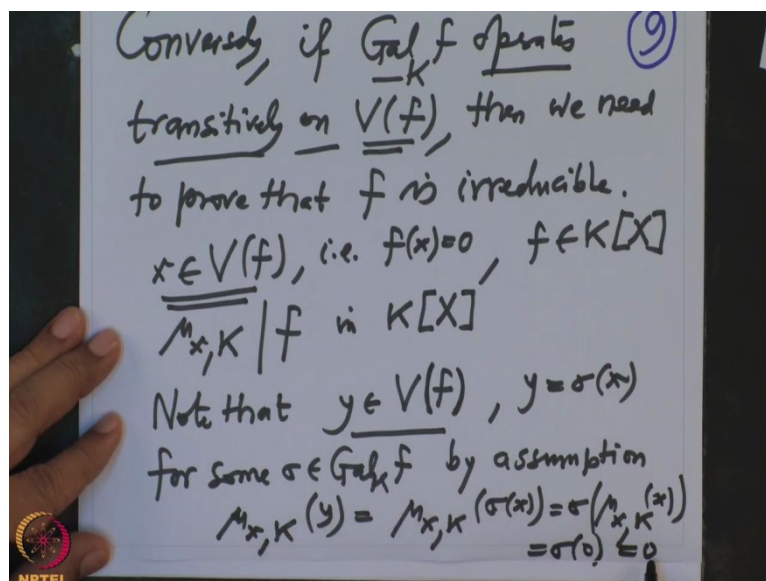 Conversely, if Gal_K f operates ⑨
transitively on V(f), then we need
to prove that f is irreducible.
x ∈ V(f), i.e. f(x)=0, f ∈ K[X]
μ_{x,K} | f in K[X]
Note that y ∈ V(f), y = σ(x)
for some σ ∈ Gal_K f by assumption
μ_{x,K}(y) = μ_{x,K}(σ(x)) = σ(μ_{x,K}(x))
= σ(0) = 0
NPTEL